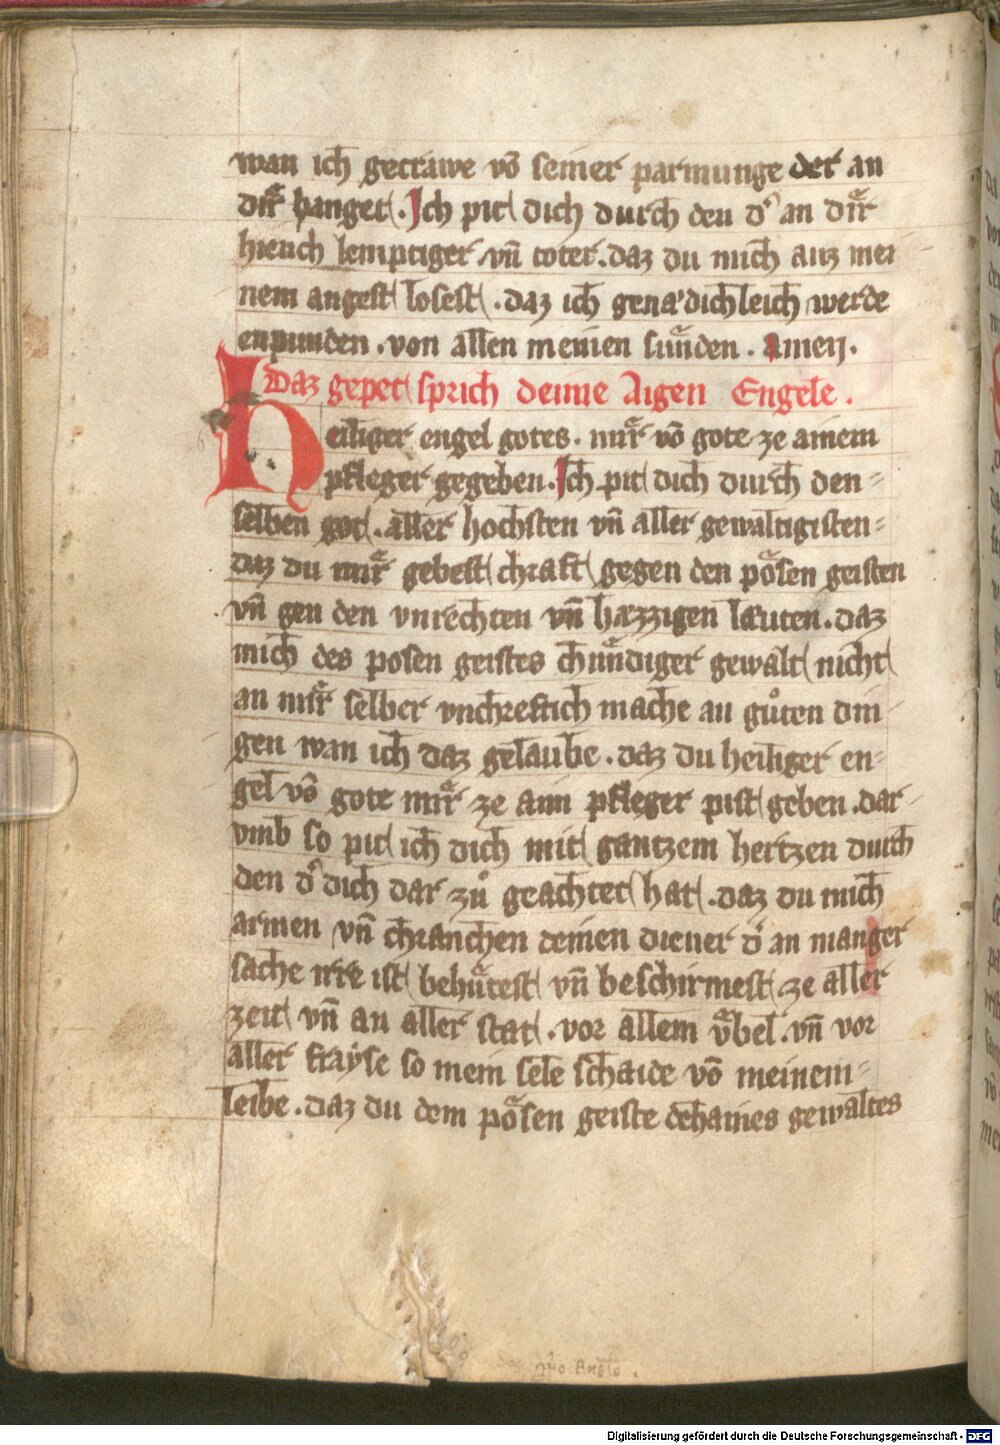 wan ich getrawe vō seiner parmunge der an
dir hanget. Ich pit dich durch den dˢ an dir
hiench lemptiger. vn̄ toter. daz du mich auz mei
nem angest losest. daz ich genaͤdichleich werde
enpunden. von allen meinen suͤnden. amen.
Daz gepet sprich deine Aigen Engele.
Heiliger engel gotes. mir vō gote ze ainem
pfleger gegeben. Ich pit dich durch den=
selben got. aller hochsten vn̄ aller gewaltigisten=
daz du mir gebest chraft gegen den poͤsen geisten
vn̄ gen den vnrechten vn̄ hæzzigen læuten. daz
mich des posen geistes chuͤndiger gewalt nicht
an mir selber vnchreftich mache an guͦten din
gen wan ich daz gelaube. daz du heiliger en=
gel vō gote mir ze aim pfleger pist geben. dar=
vmb so pit ich dich mit gantzem hertzen durch
den dˢ dich dar zuͦ geachtet hat. daz du mich
armen vn̄ chranchen deinen diener dˢ an manger
sache irre ist behuͤtest vn̄ beschirmest ze aller
zeit vn̄ an aller stat. vor allem vͤbel. vn̄ vor
aller frayse so mein sele schaide vō meinem=
leibe. daz du dem poͤsen geiste dehaines gewaltes
Digitalisierung gefördert durch die Deutsche Forschungsgemeinschaft - DFG